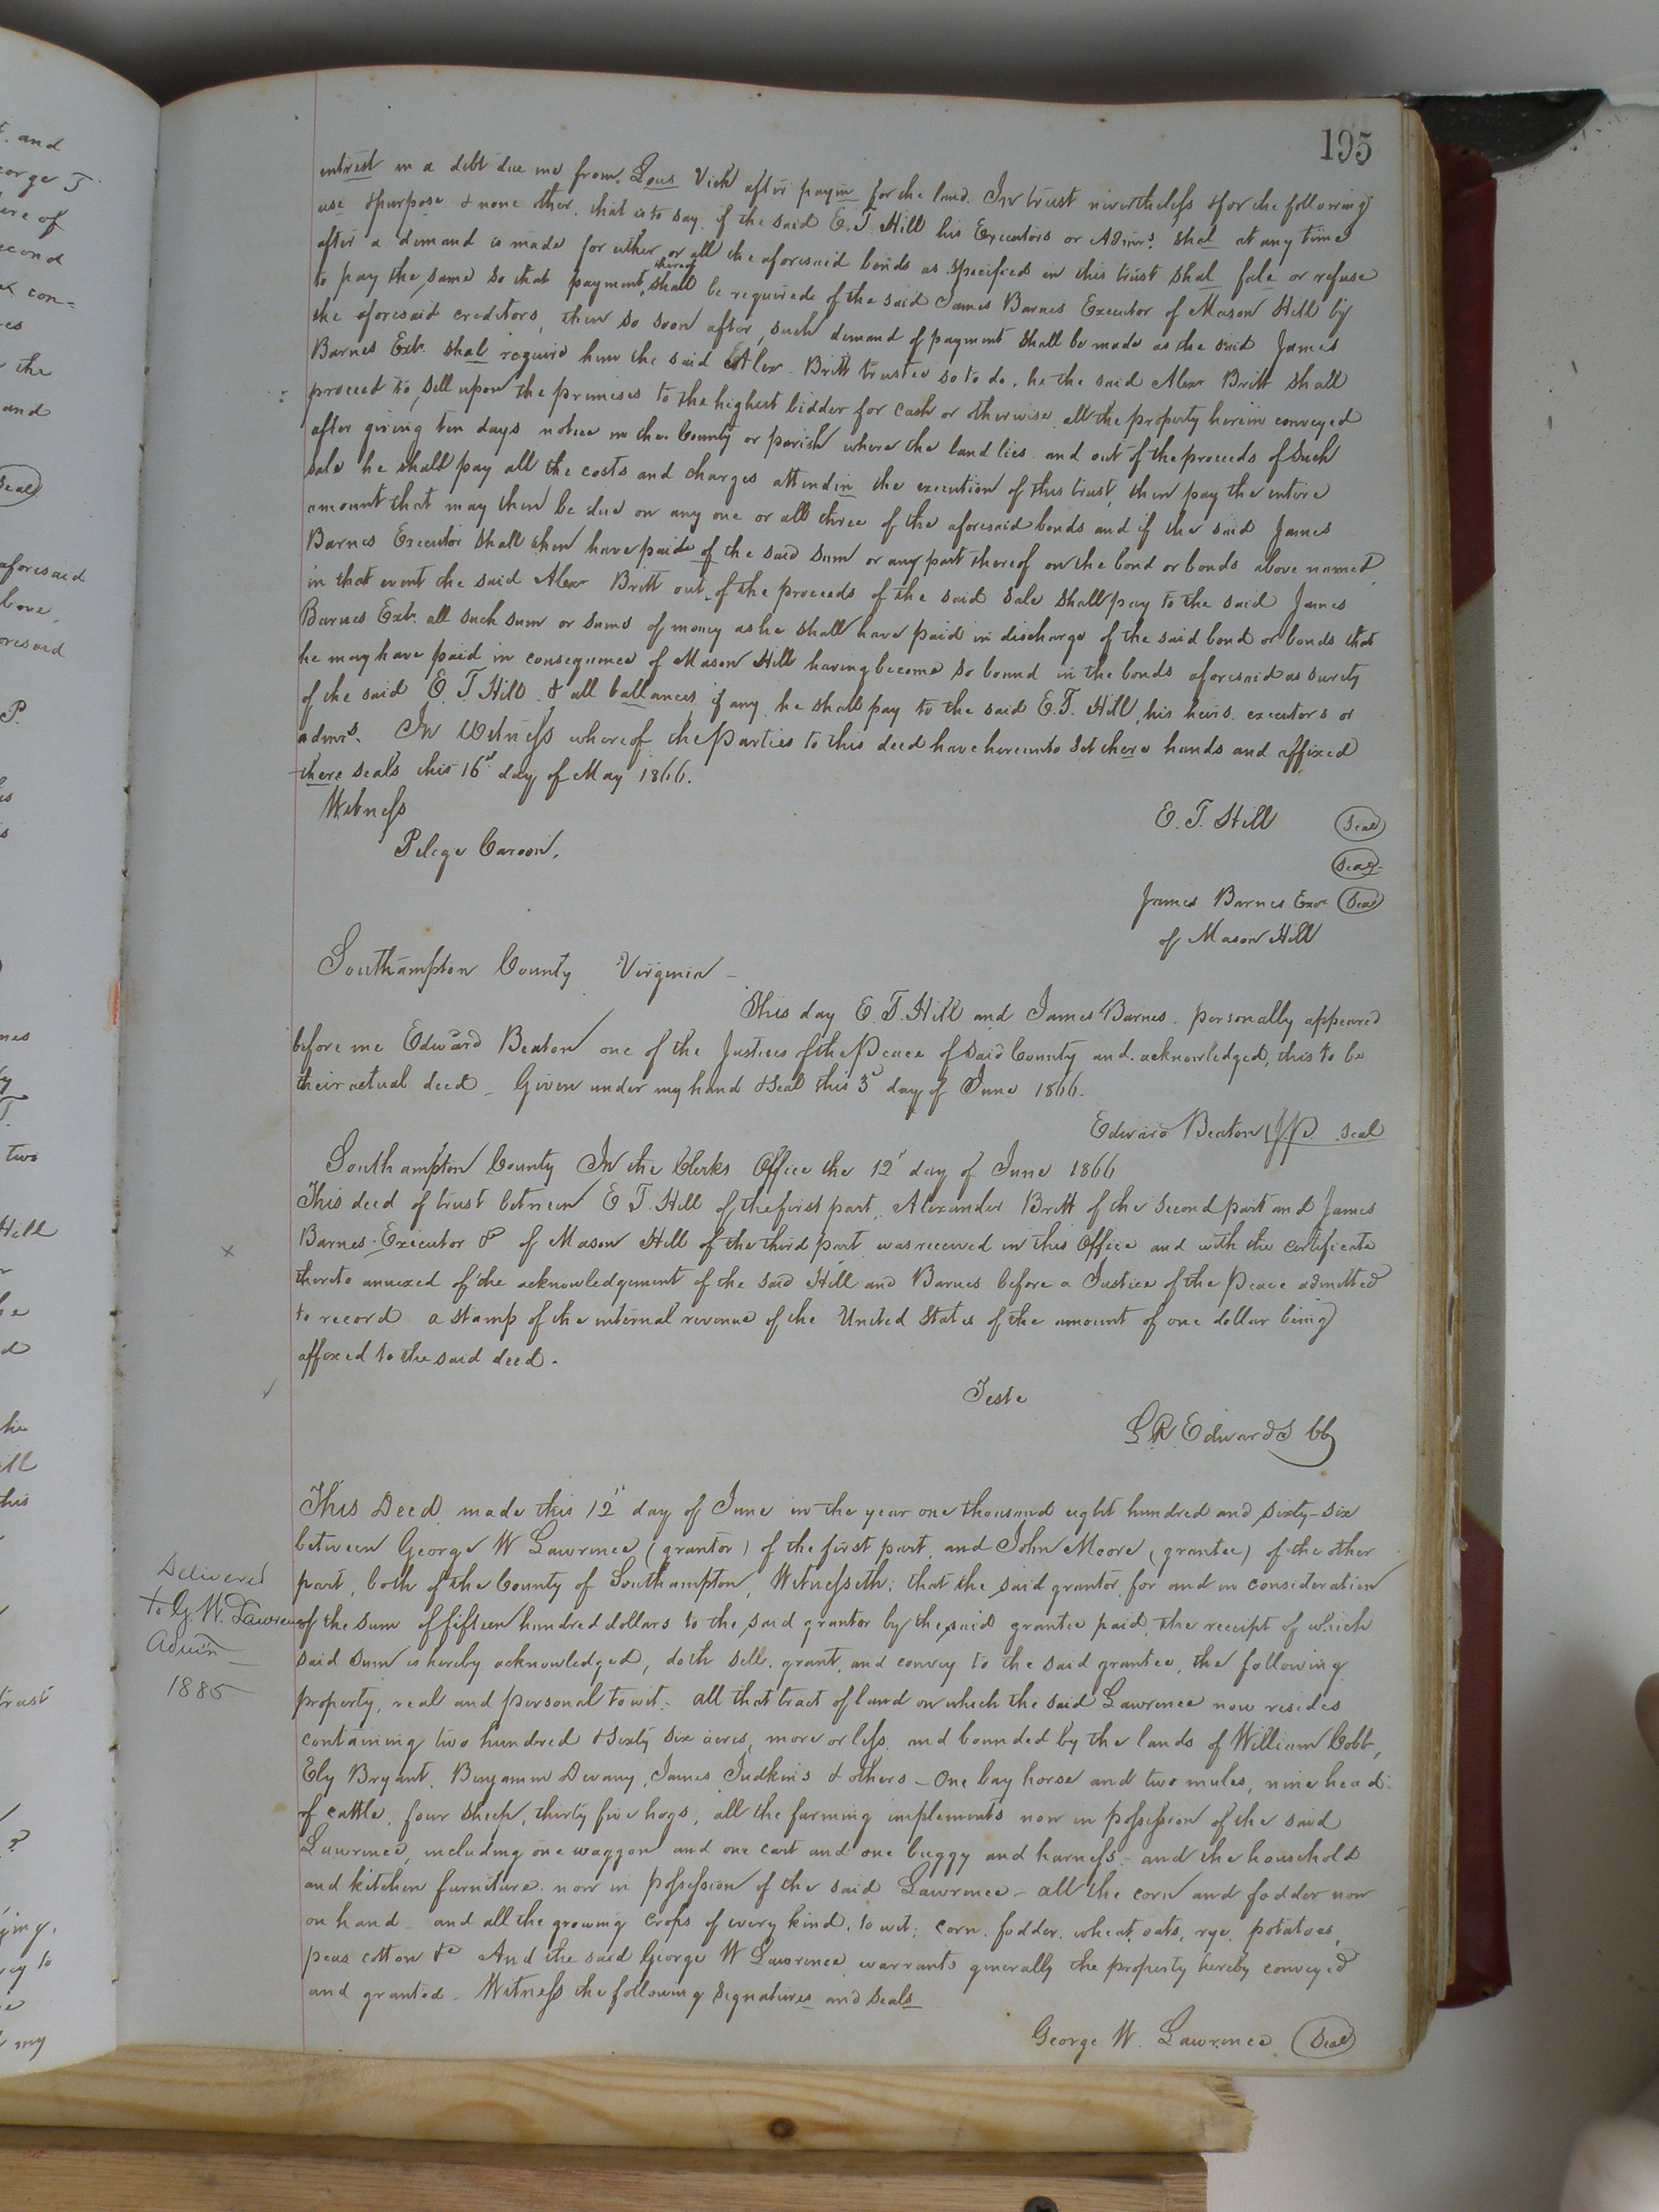 195
intrest in a debt due me from Lous Vick after payin for the land. In trust nevertheless & for the following
use & purpose & none other. that is to say. if the said E. T. Hill his Executors or Admrs. shal at any time
after a demand is made for either or all the aforesaid bonds as specified in this trust shal fale or refuse
to pay the same so that payment thereof shall be requirede of the said James Barnes Executor of Mason Hill by
the aforesaid creditors, then so soon after such demand of payment shall be made as the said James
Barnes Extr. shal require him the said Alexr. Britt trustee so to do, he the said Alexr Britt shall
proceed to sell upon the premises to the highest bidder for cash or otherwise all the property herein conveyed
after giving ten days notice in the County or parish where the land lies and out of the proceeds of such
sale he shall pay all the costs and charges attendin the execution of this trust, then pay the entire
amount that may then be due on any one or all three of the aforesaid bonds and if the said James
Barnes Executor shall then have paide of the said sum or any part thereof on the bond or bonds above named
in that event the said Alexr Britt out of the proceeds of the said sale shall pay to the said James
Barnes Extr. all such sum or sums of money as he shall have paid in discharge of the said bond or bonds that
he may have paid in consequence of Mason Hill having become so bound in the bonds aforesaid as surety
of the said E. T. Hill & all ballances if any he shall pay to the said E. T. Hill, his heirs executors or
admrs. In Witness whereof the Parties to this deed have hereunto set there hands and affixed
there seals this 16st day of May 1866.
Witness
E. T. Hill Seal
Pelege
Seal
James Barnes Exor Seal
of Mason Hill
Southampton County Virginia
This day E. T. Hill and James Barnes personally appeared
before me Edward Beaton one of the Justices of the Peace of said County and acknowledged, this to be
their actual deed - Given under my hand & seal this 3d day of June 1866.
Edward Beaton J P seal
Southampton County In the Clerks Office the 12' day of June 1866
This deed of trust between E T. Hill of the first part, Alexander Britt of the second part and James
Barnes Executor &c of Mason Hill of the third part was received in this Office and with the certificate
thereto annexed of the acknowledgement of the said Hill and Barnes before a Justice of the Peace admitted
to record a stamp of the internal revenue of the United States of the amount of one dollar being
affixed to the said deed.
Teste
L R Edwards CC
This Deed made this 12' day of June in the year one thousand eight hundred and sixty-six
between George W Lawrence (grantor) of the first part, and John Moore (grantee) of the other
part, both of the County of Southampton, Witnesseth; that the said grantor for and in consideration
of the sum of fifteen hundred dollars to the said grantor by the said grantee paid, the receipt of which
said sum is hereby acknowledged, doth sell, grant, and convey to the said grantee, the following
property, real and personal to wit: all that tract of land on which the said Lawrence now resides
containing two hundred & sixty six acres, more or less, and bounded by the lands of William Cobb,
Ely Bryant, Benjamin Devany, James Judkins & others - One bay horse and two mules, nine head
of cattle, four sheep, thirty five hogs, all the farming implements now in possession of the said
Lawrence, including one waggon and one cart and one buggy and harness - and the household
and kitchen furniture now in possession of the said Lawrence - all the corn and fodder now
on hand - and all the growing crops of every kind, to wit; corn, fodder, wheat, oats, rye, potatoes,
peas cotton &c And the said George W Lawrence warrants generally the property hereby conveyed
and granted. Witness the following signatures and seals
George W. Lawrence Seal
Delivered
to G. W. Lawrence
Admin
1885